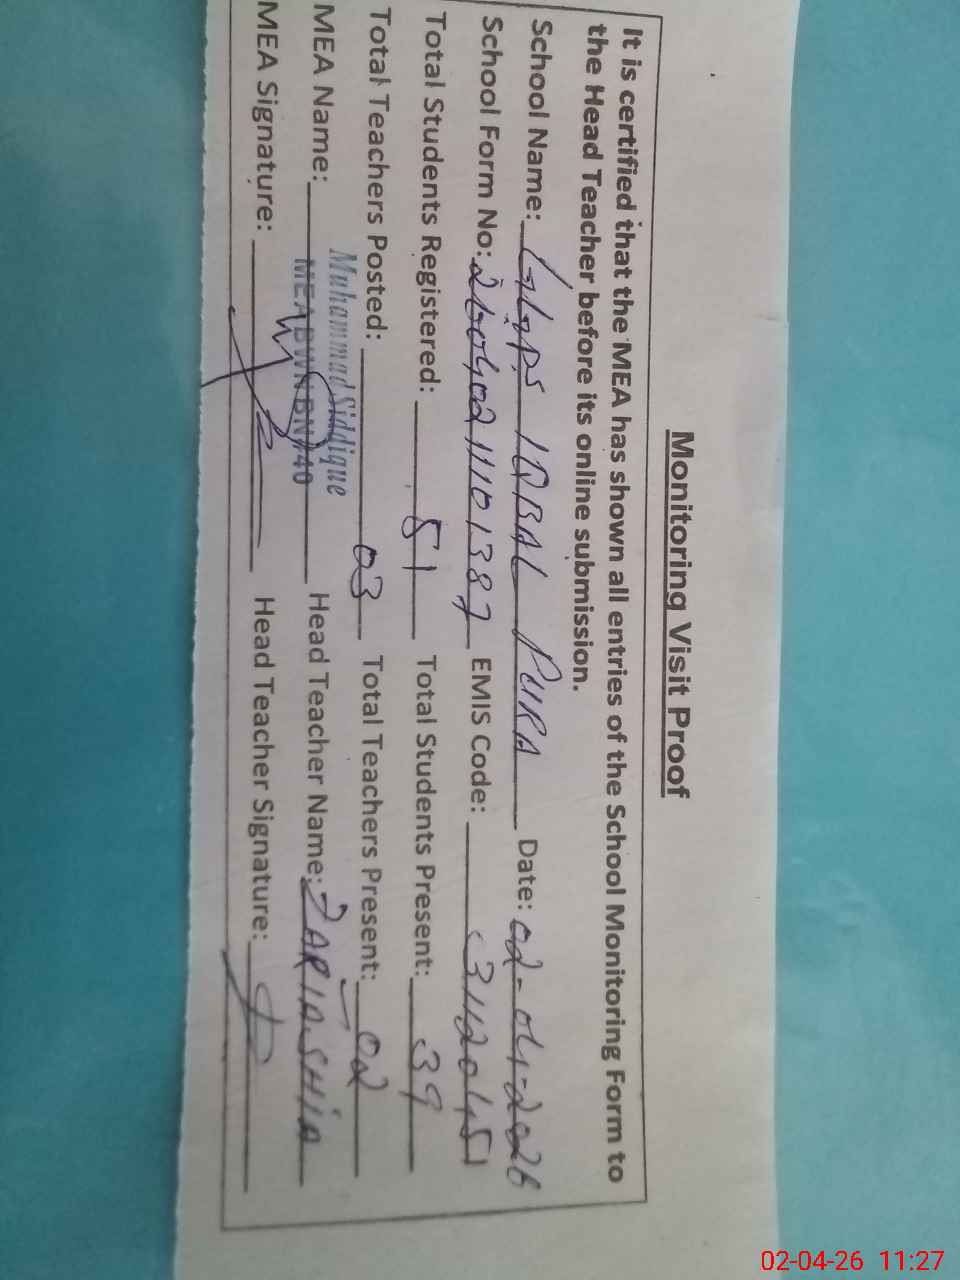 Monitoring Visit Proof
It is certified that the MEA has shown all entries of the School Monitoring Form to
the Head Teacher before its online submission.
School Name: GGPS IQBAL PURA Date: 02-04-2026
School Form No: EMIS Code: 31120451
Total Students Registered: 51 Total Students Present: 39
Total Teachers Posted: 03 Total Teachers Present: 02
Muhammad Siddique
MEA Name: MEABWNBN#40 Head Teacher Name:
MEA Signature: Head Teacher Signature:
02-04-26 11:27